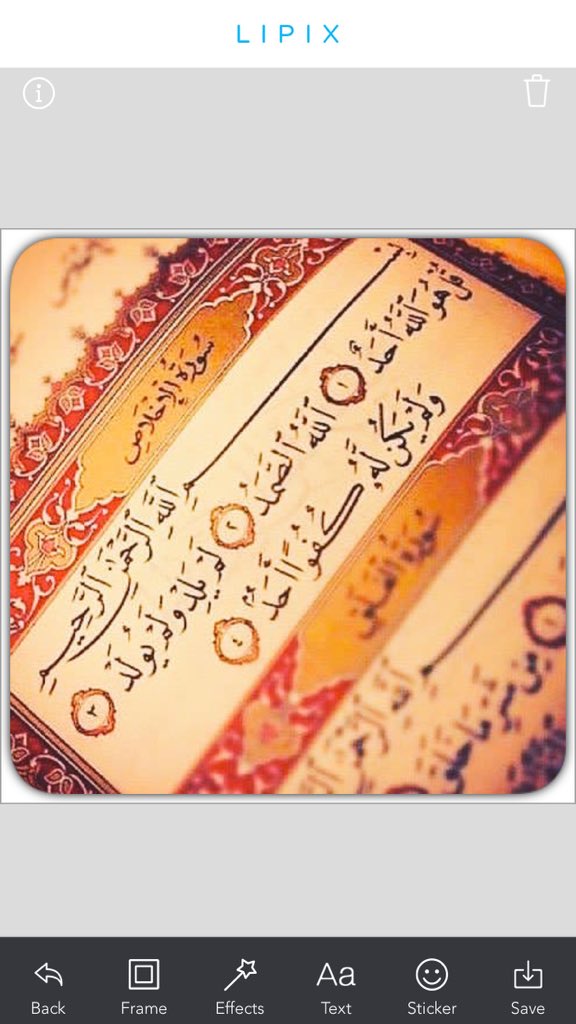 LIPIX
سُورَةُ الإِخْلَاصِ
بِسْمِ اللَّهِ الرَّحْمَٰنِ الرَّحِيمِ
قُلْ هُوَ اللَّهُ أَحَدٌ ١ اللَّهُ الصَّمَدُ ٢ لَمْ يَلِدْ وَلَمْ يُولَدْ ٣
وَلَمْ يَكُن لَّهُ كُفُوًا أَحَدٌ ٤
سُورَةُ الفَلَقِ
اللَّهِ الرَّحْمَٰنِ
١
مِن شَرِّ مَا خَلَقَ
Back
Frame
Effects
Text
Sticker
Save